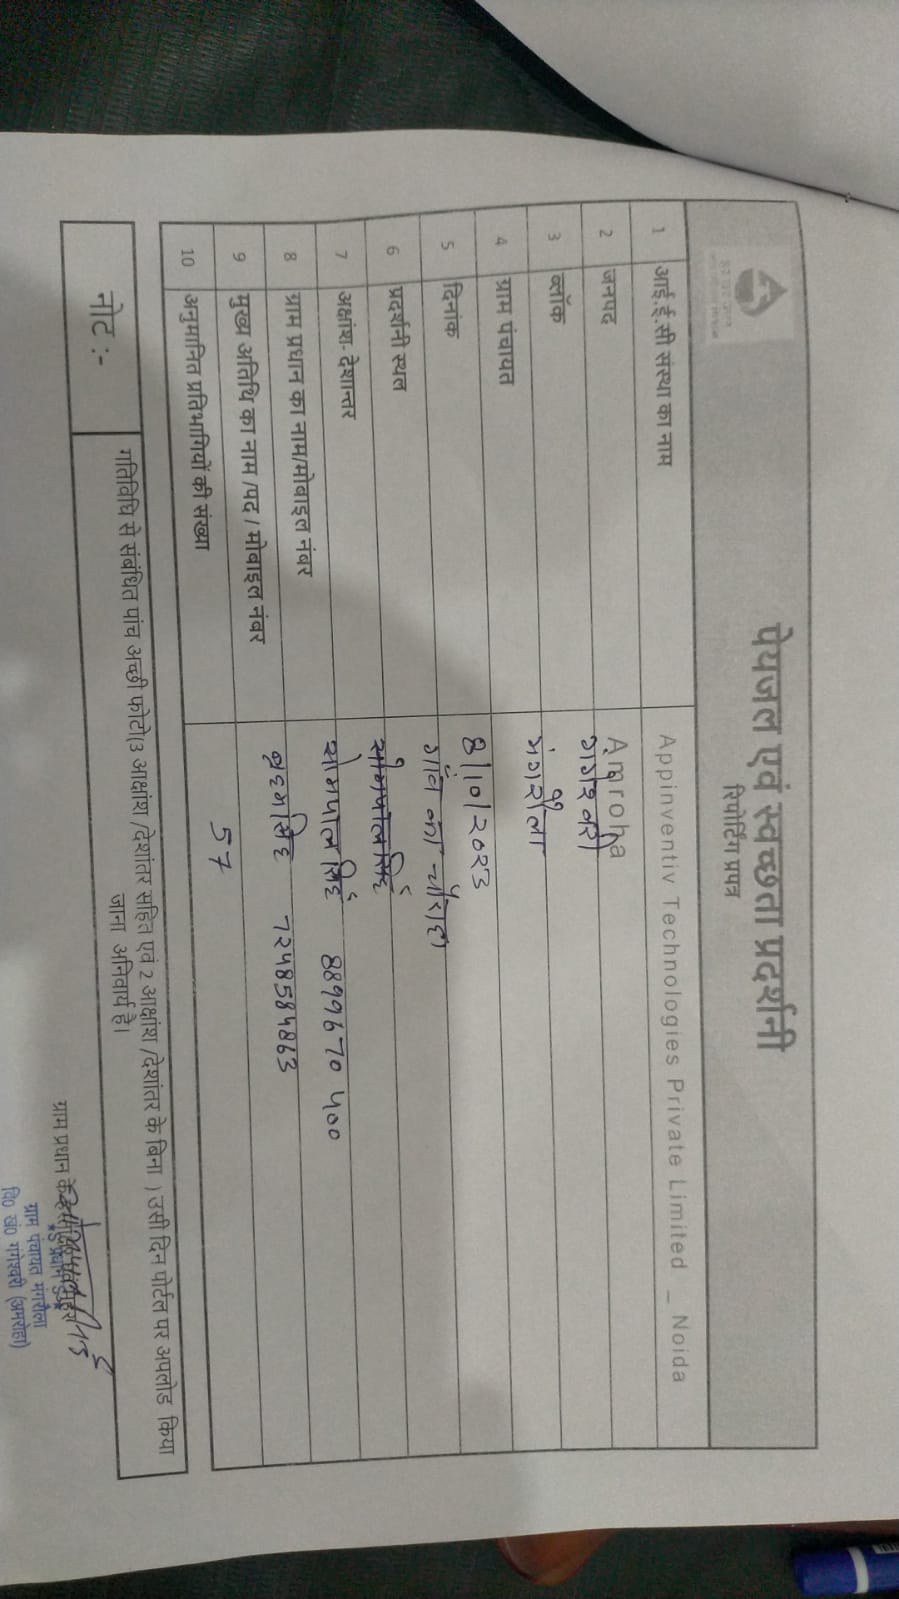 पेयजल एवं स्वच्छता प्रदर्शनी
रिपोर्टिंग प्रपत्र
1 आई.ई.सी संस्था का नाम Appinventiv Technologies Private Limited _ Noida
2 जनपद Amroha
3 ब्लॉक गंगेश्वरी
4 ग्राम पंचायत मंगरौला
5 दिनांक 8/10/2023
6 प्रदर्शनी स्थल गांव का चौराहा
7 अक्षांश- देशान्तर
8 ग्राम प्रधान का नाम/मोबाइल नंबर सोमपाल सिंह 8899670400
9 मुख्य अतिथि का नाम /पद / मोबाइल नंबर 7248584863
10 अनुमानित प्रतिभागियों की संख्या 57
नोट :- गतिविधि से संबंधित पांच अच्छी फोटो(3 आक्षांश /देशांतर सहित एवं 2 आक्षांश /देशांतर के बिना ) उसी दिन पोर्टल पर अपलोड किया
जाना अनिवार्य है।
ग्राम प्रधान के
ग्राम पंचायत मंगरौला
वि0 खं0 गंगेश्वरी (अमरोहा)